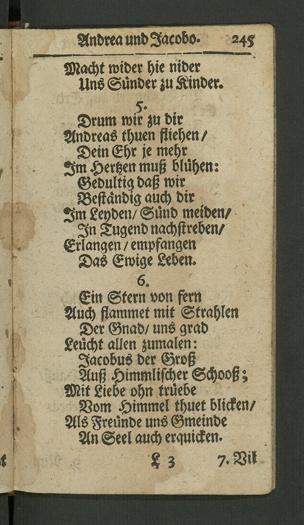 Andrea und Jacobo. 245
Macht wider hie nider
Uns Sünder zu Kinder.
5.
Drum wir zu dir
Andreas thuen fliehen/
Dein Ehr je mehr
Im Hertzen muß blühen:
Gedultig daß wir
Beständig auch dir
Im Leyden/ Sünd meiden/
In Tugend nachstreben/
Erlangen/ empfangen
Das Ewige Leben.
6.
Ein Stern von fern
Auch flammet mit Strahlen
Der Gnad/ uns grad
Leücht allen zumalen:
Jacobus der Groß
Auß Himmlischer Schooß;
Mit Liebe ohn trüebe
Vom Himmel thuet blicken/
Als Freünde uns Gmeinde
An Seel auch erquicken.
L 3 7. Vil